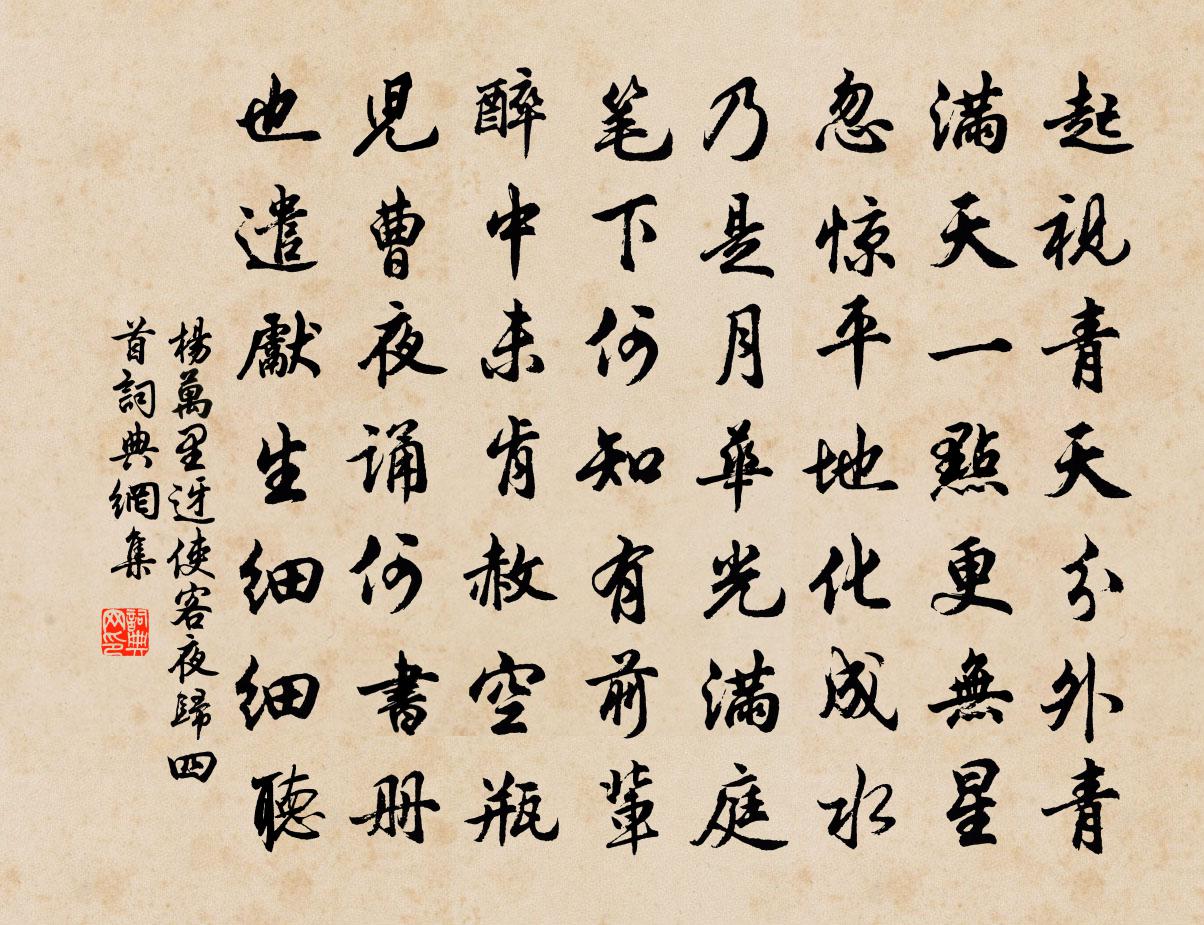 起視青天分外青
滿天一點更無星
忽惊平地化成水
乃是月華光滿庭
笔下何知有前輩
醉中未肯赦空瓶
児曹夜誦何書册
也遣獻生細細聽
楊萬里迓使客夜歸四
首詞典網集
詞典
网印